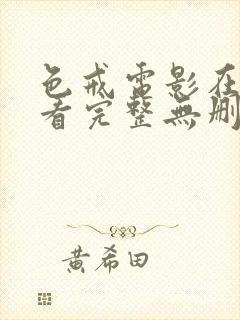 色戒电影在
看完整無刪
黄希田